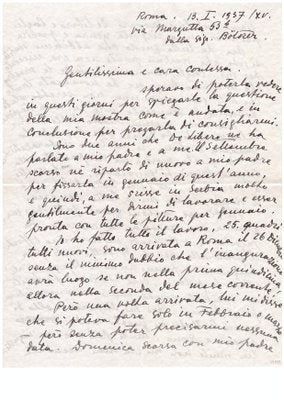 Roma. 13. I. 1937/XV.
via Margutta 53a
dalla sig.
Gentilissima e cara contessa
speravo di poterla vedere
in questi giorni per spiegarle la questione
della mia mostra come è andata, e in
conclusione per pregarla di consigliarmi.
Sono due anni che De Libero ne ha
parlato a mio padre e a me. Il Settembre
scorso ne riparlò di nuovo a mio padre
per fissarla in gennaio di quest'anno,
e quindi, a me scrisse in Serbia molto
gentilmente per dirmi di lavorare e esser
pronta con tutte le pitture per gennaio.
Io ho fatto tutto il lavoro, 25 quadri
tutti nuovi, sono arrivata a Roma il 26 Dic.
senza il minimo dubbio che l'inaugurazione
avrà luogo se non nella prima quindicina
allora nella seconda del mese corrente.
Però una volta arrivata, lui mi disse
che si poteva fare solo in Febbraio o marzo
— però senza poter precisarmi nessuna
data. Domenica scorsa con mio padre